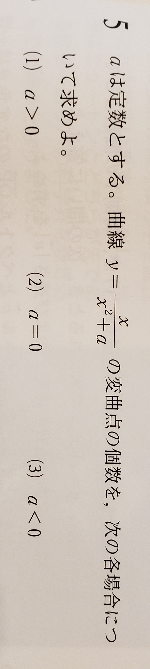 5 aは定数とする。曲線 y = x/(x²+a) の変曲点の個数を，次の各場合につ
いて求めよ。
(1) a > 0 (2) a = 0 (3) a < 0